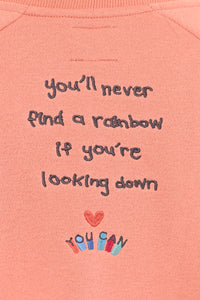 you'll never
find a rainbow
if you're
looking down
YOU CAN